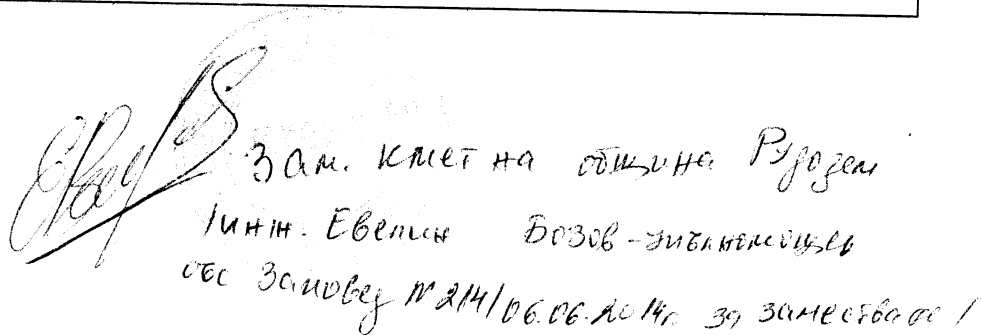 Зам. кмет на община Рудозем
/инж. Евелин Бозов - упълномощен
със Заповед № 214/06.06.2014г. за заместване/